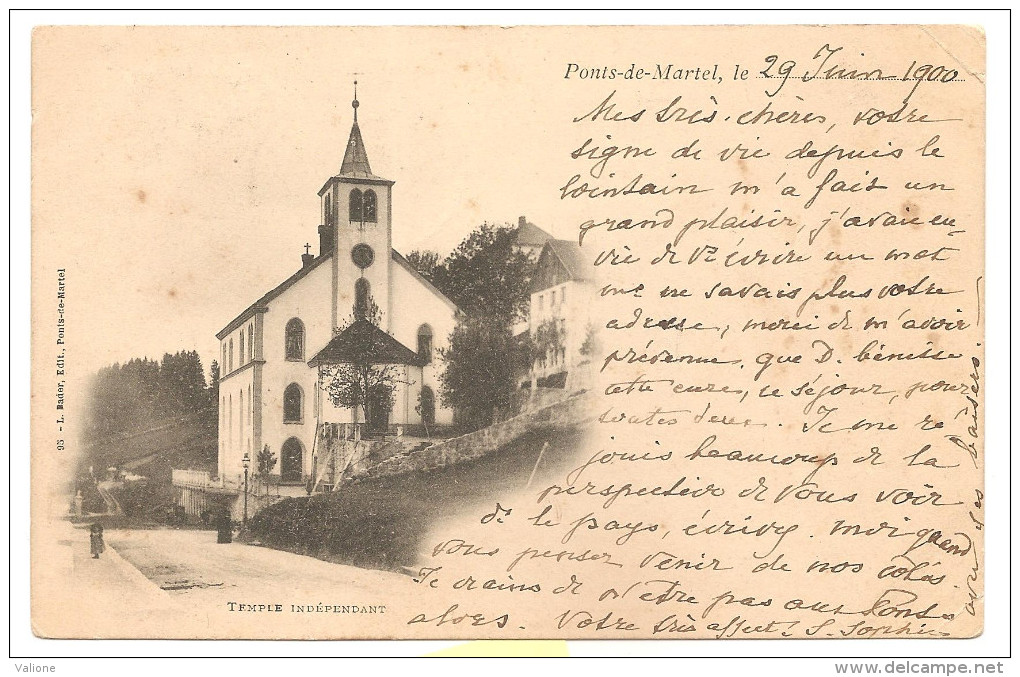 Ponts-de-Martel, le 29 Juin 1900
Mes très chères, votre
signe de vie depuis le
lointain m'a fait un
grand plaisir, j'avais en-
vie de vs écrire un mot
ms ne savais plus votre
adresse, merci de m'avoir
prévenue, que D. bénisse
cette cure, ce séjour, pour
toutes deux. Je me ré
jouis beaucoup de la
perspective de vous voir
ds le pays, écrivez moi quand
vous penser venir de nos côtés.
Je crains de n'être pas aux Ponts
alors. Votre très affect. S. Sophie
avec des baisers.
95 - L. Bader, Edit., Ponts-de-Martel
Temple indépendant
Valione
www.delcampe.net